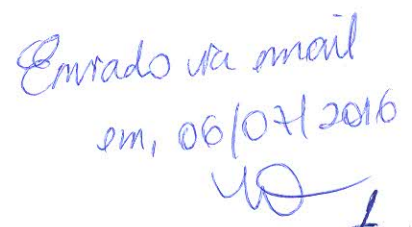 Enviado via email
em, 06/07/2016